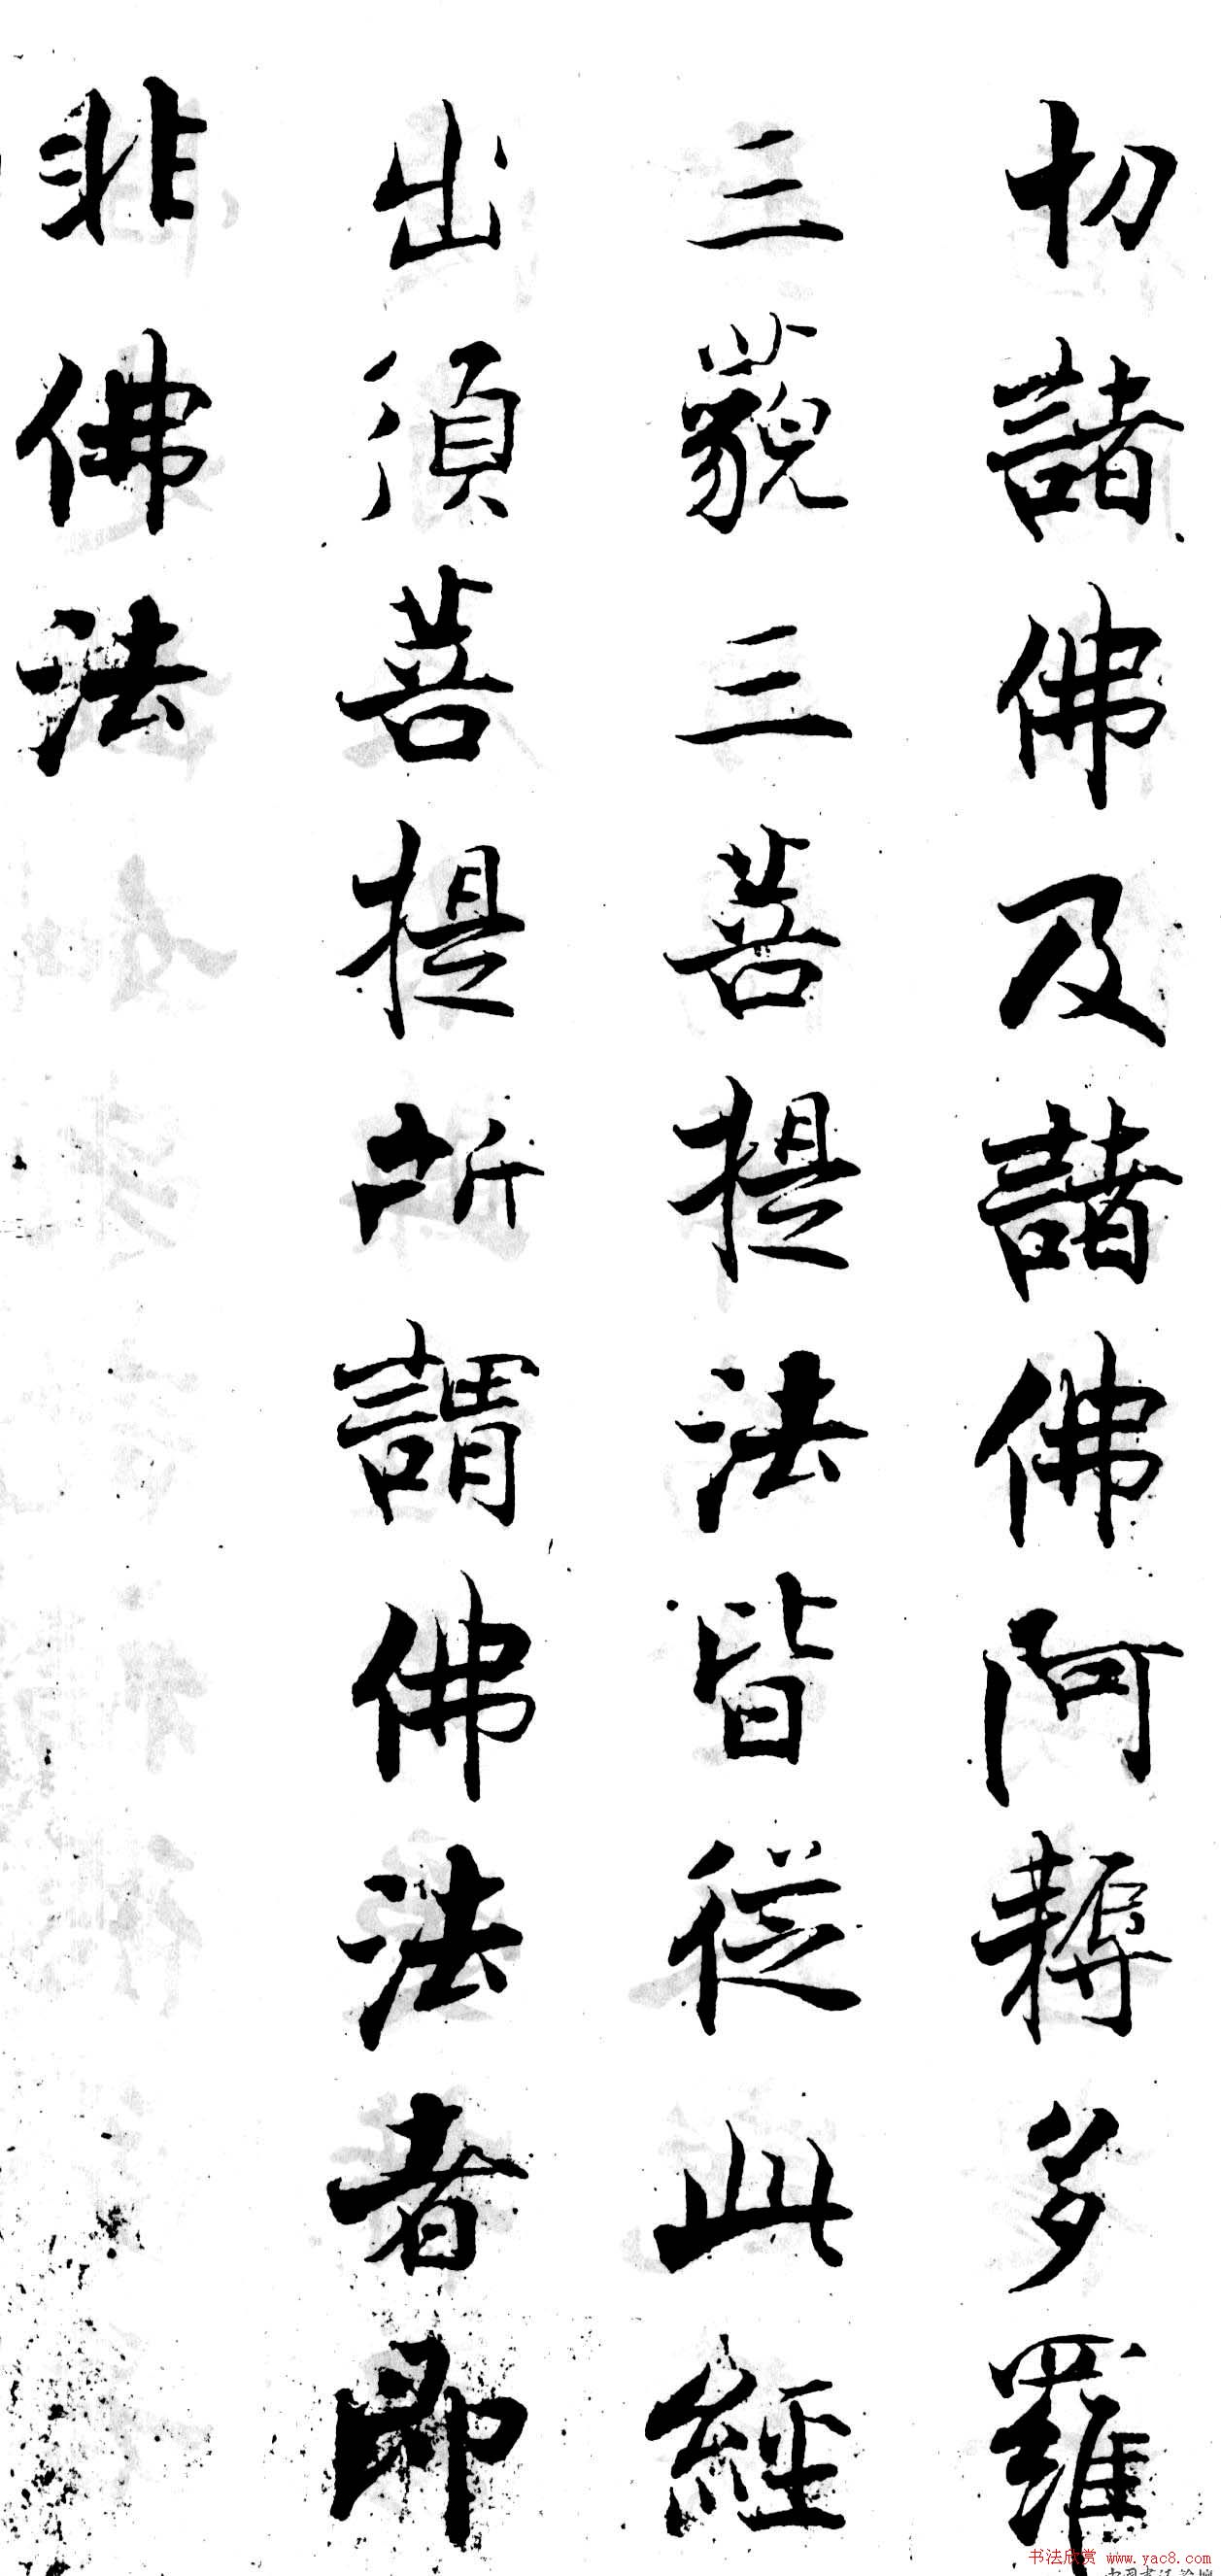 切諸佛及諸佛阿耨多羅
三藐三菩提法皆從此經
出須菩提所謂佛法者即
非佛法
书法欣赏 www.yac8.com